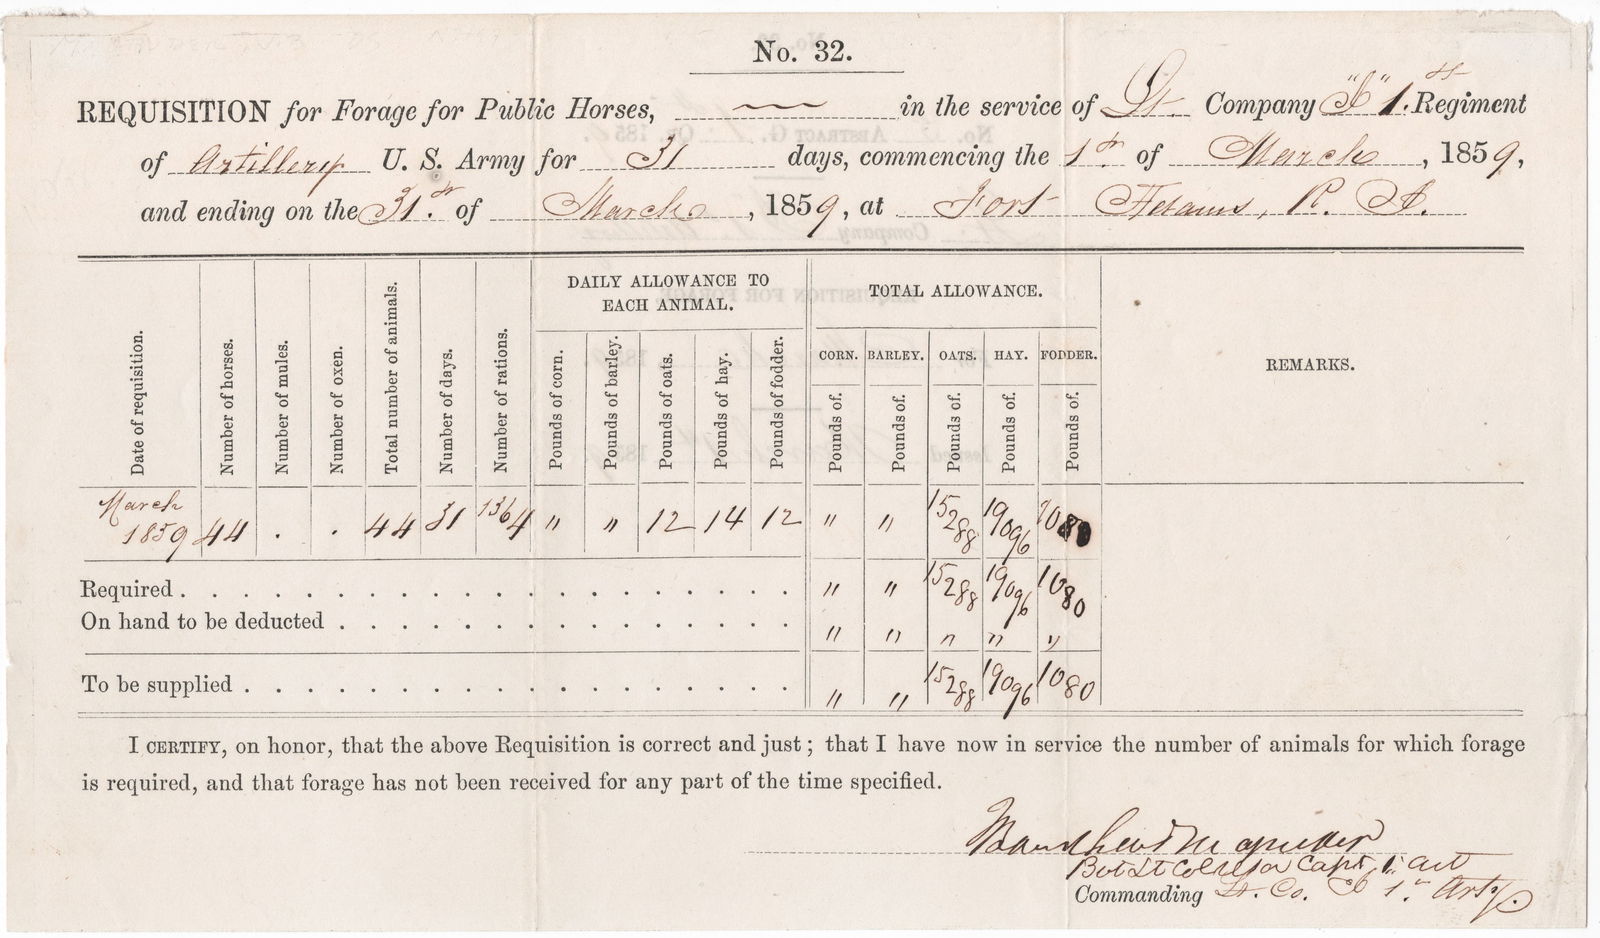 No. 32.
REQUISITION for Forage for Public Horses, — in the service of Lt. Company "I" 1.st Regiment
of Artillery U. S. Army for 31 days, commencing the 1st. of March, 1859,
and ending on the 31.st of March, 1859, at Fort Adams, R. I.
DAILY ALLOWANCE TO EACH ANIMAL.
TOTAL ALLOWANCE.
Date of requisition.
Number of horses.
Number of mules.
Number of oxen.
Total number of animals.
Number of days.
Number of rations.
Pounds of corn.
Pounds of barley.
Pounds of oats.
Pounds of hay.
Pounds of fodder.
CORN. BARLEY. OATS. HAY. FODDER.
Pounds of. Pounds of. Pounds of. Pounds of. Pounds of.
REMARKS.
March 1859 44 . . 44 31 1364 " " 12 14 12 " " 15288 19096 1080
Required . . . . " " 15288 19096 1080
On hand to be deducted . . . . " " " " "
To be supplied . . . . " " 15288 19096 1080
I CERTIFY, on honor, that the above Requisition is correct and just; that I have now in service the number of animals for which forage
is required, and that forage has not been received for any part of the time specified.
Magruder
Bvt Lt Col Capt 1st Art
Commanding Lt. Co. I 1st. Arty.